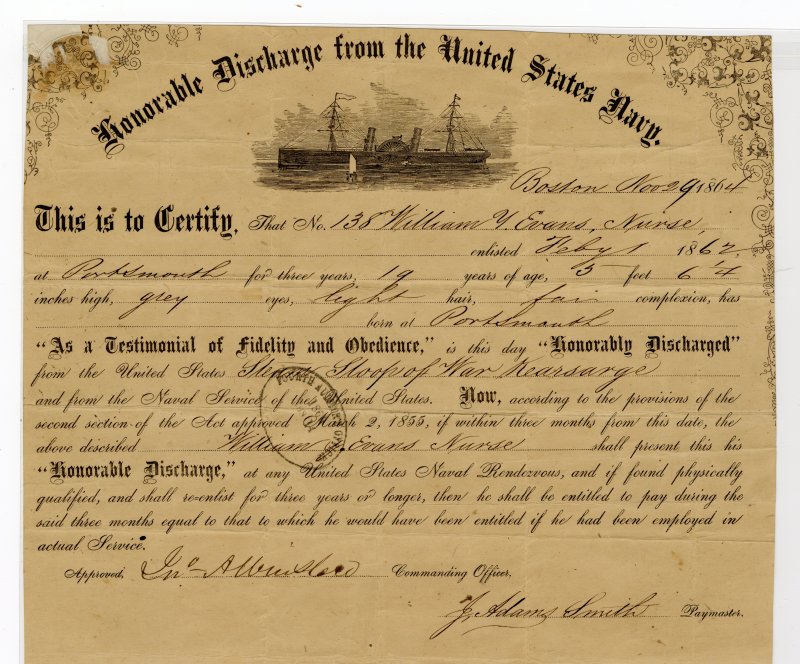 Honorable Discharge from the United States Navy.
Boston Nov 29 1864
This is to Certify, That No. 138 William Y. Evans, Nurse,
enlisted Feby 1 1862,
at Portsmouth for three years, 19 years of age, 5 feet 6 1/4
inches high, grey eyes, light hair, fair complexion, has
born at Portsmouth
"As a Testimonial of Fidelity and Obedience," is this day "Honorably Discharged"
from the United States Steam Sloop of War Kearsarge
and from the Naval Service of the United States. Now, according to the provisions of the
second section of the Act approved March 2, 1855, if within three months from this date, the
above described William Y. Evans Nurse shall present this his
"Honorable Discharge," at any United States Naval Rendezvous, and if found physically
qualified, and shall re-enlist for three years or longer, then he shall be entitled to pay during the
said three months equal to that to which he would have been entitled if he had been employed in
actual Service.
Approved, Jno A Winslow Commanding Officer.
J. Adams Smith Paymaster.